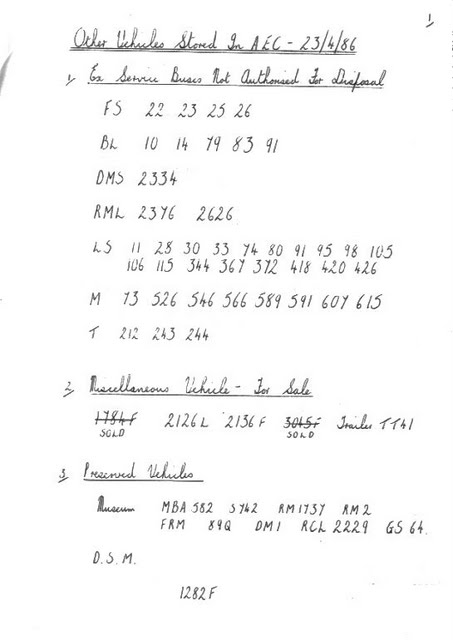 1
Other Vehicles Stored In AEC - 23/4/86
1, Ex Service Buses Not Authorised For Disposal
FS 22 23 25 26
BL 10 14 79 83 91
DMS 2334
RML 2376 2626
LS 11 28 30 33 74 80 91 95 98 105
106 115 344 367 372 418 420 426
M 73 526 546 566 589 591 607 615
T 212 243 244
2, Miscellaneous Vehicle - For Sale
1784F 2126L 2136F 3045F Trailer TT41
SOLD SOLD
3, Preserved Vehicles
Museum MBA 582 S742 RM1737 RM2
FRM 89Q DM1 RCL 2229 GS 64.
D.S.M.
1282F